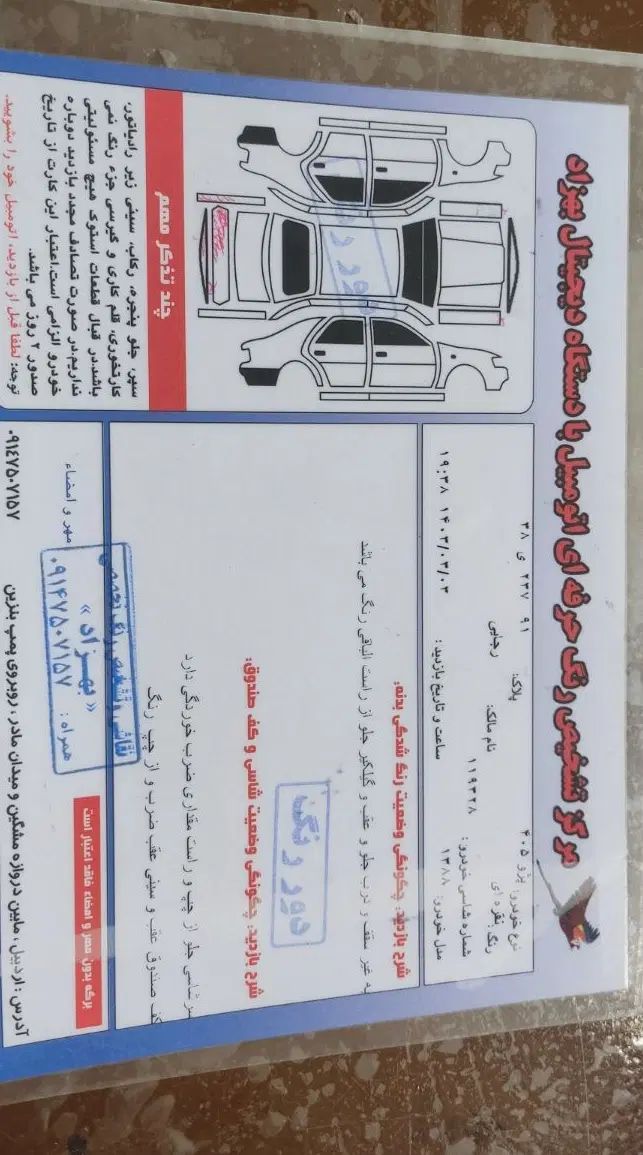 مرکز تشخیص رنگ حرفه ای اتومبیل با دستگاه دیجیتال بهزاد
نوع خودرو: پژو ۴۰۵
پلاک: ۹۱ ۲۳۷ ی ۳۸
رنگ: نقره ای
نام مالک: رجایی
شماره شاسی خودرو: ۱۱۹۳۲۸
مدل خودرو: ۱۳۸۸
ساعت و تاریخ بازدید: ۱۴۰۳/۰۳/۰۳ ۱۹:۳۸
شرح بازدید: چگونگی وضعیت رنگ شدگی بدنه:
به غیر سقف و درب جلو و عقب و گلگیر جلو از راست الباقی رنگ می باشد
دور رنگ
شرح بازدید: چگونگی وضعیت شاسی و کف صندوق:
سر شاسی جلو از چپ و راست مقداری ضرب خوردگی دارد
کف صندوق عقب و سینی عقب ضرب و از چپ رنگ
دور رنگ
چند تذکر مهم
سپر، جلو پنجره، رکاب، سینی زیر رادیاتور،
کارتخوری، قلم کاری و گیرسی جزء رنگ نمی
باشد.در قبال قطعات استوک هیچ مسئولیتی
نداریم.در صورت تصادف مجدد بازدید دوباره
خودرو الزامی است.اعتبار این کارت از تاریخ
صدور ۲ روز می باشد.
توجه: لطفا قبل از بازدید، اتومبیل خود را بشویید.
مهر و امضاء
نقاشی و تشخیص رنگ تخصصی
« بهزاد »
همراه: ۰۹۱۴۷۵۰۷۱۵۷
برگه بدون مهر و امضاء فاقد اعتبار است
آدرس: اردبیل، مابین دروازه مشگین و میدان مادر، روبروی پمپ بنزین
۰۹۱۴۷۵۰۷۱۵۷